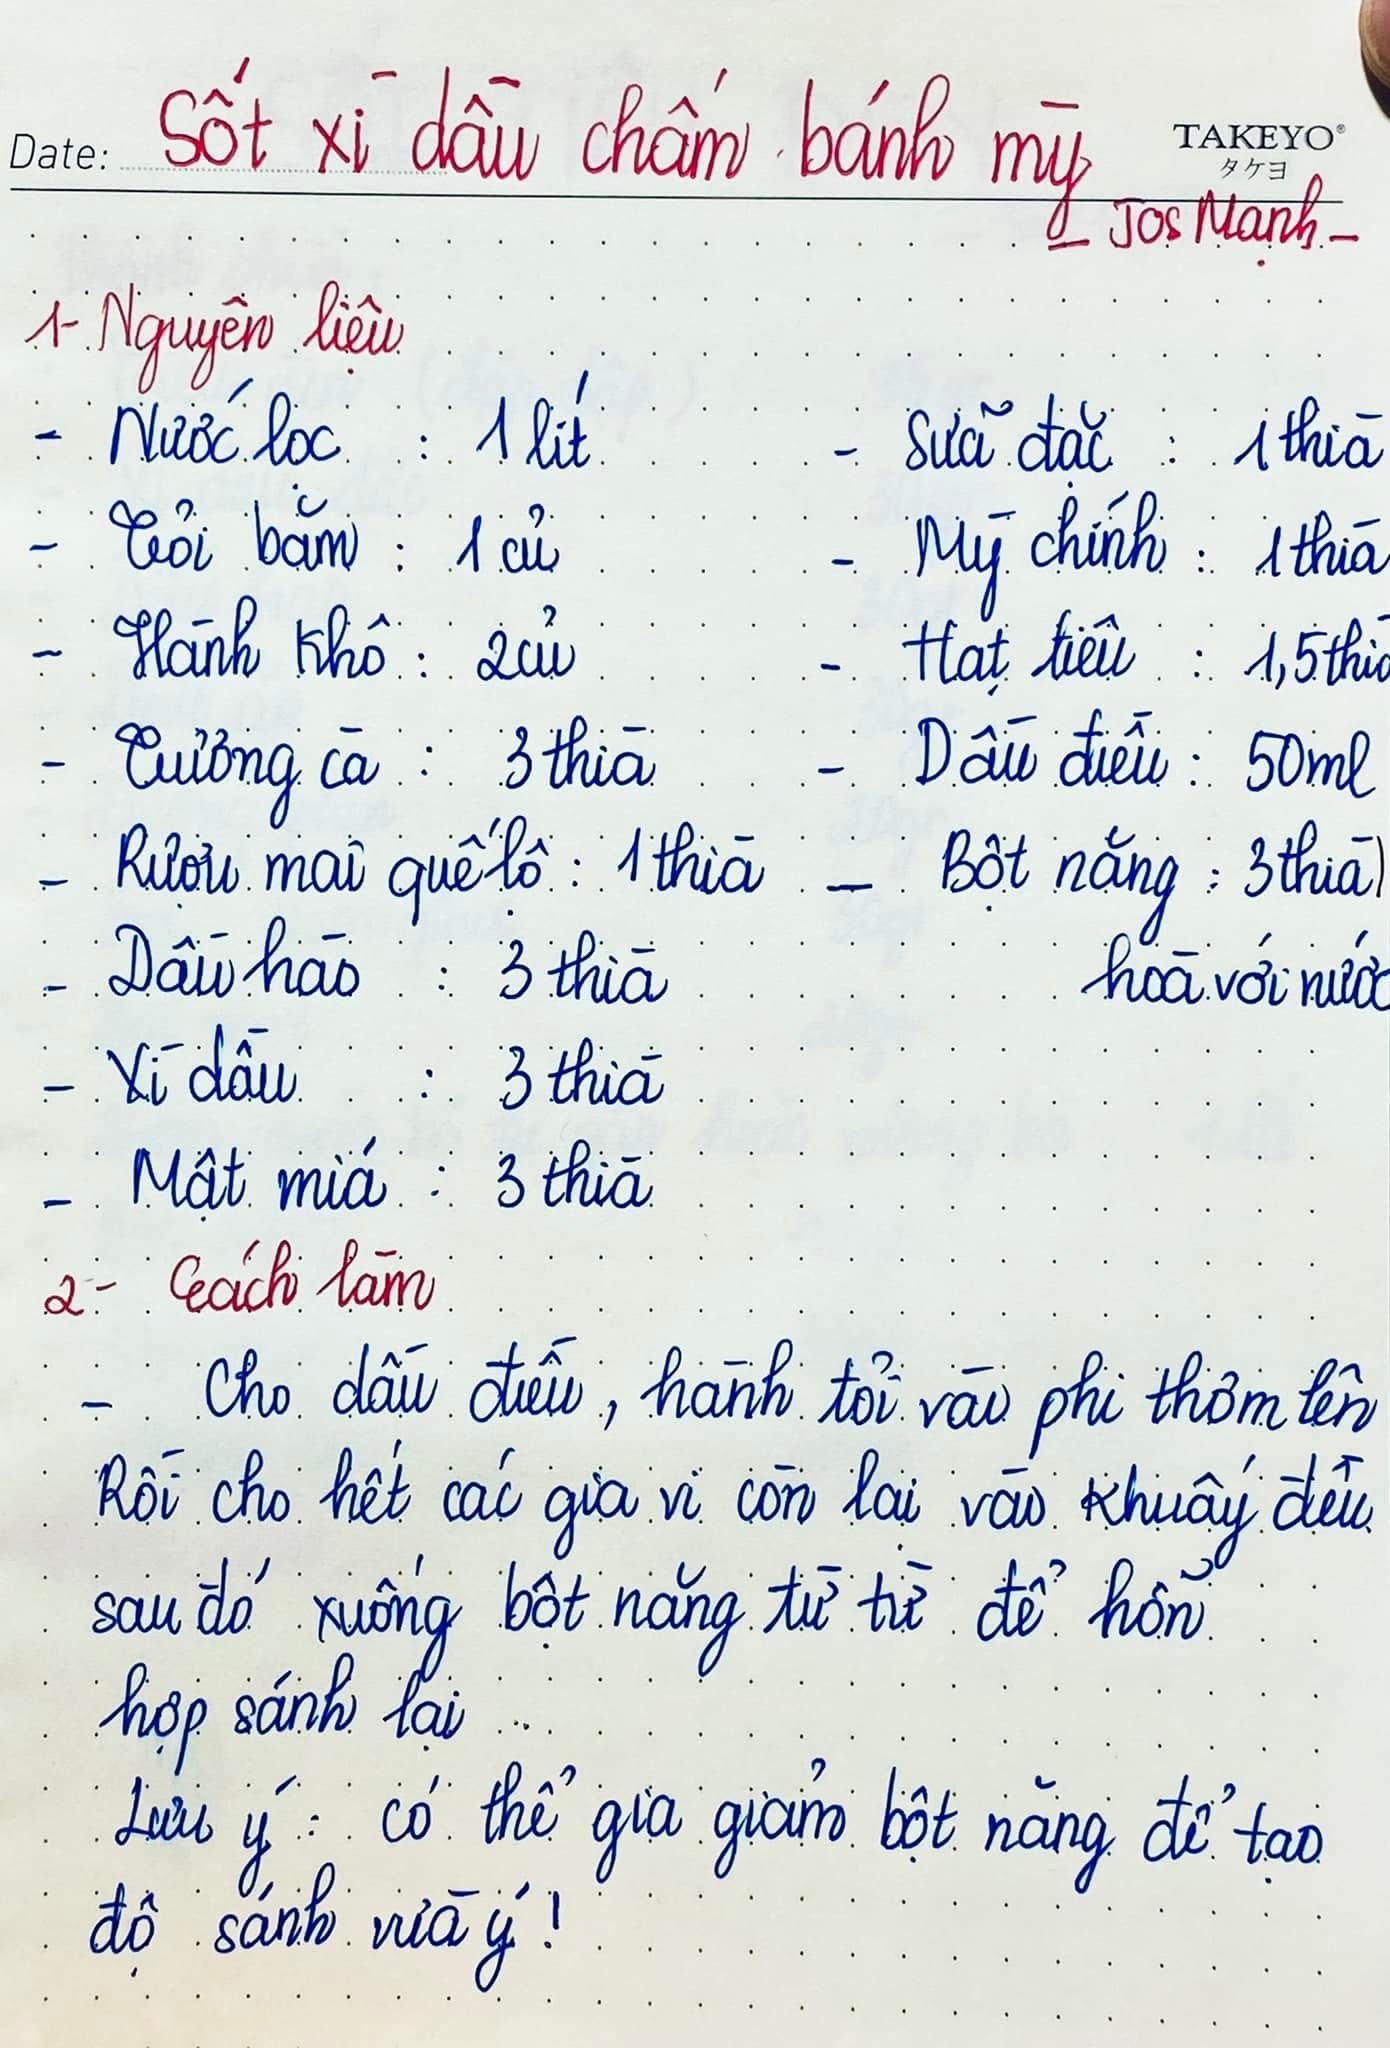 Date: Sốt xì dầu chấm bánh mỳ
TAKEYO®
タケヨ
- Jos Mạnh -
1- Nguyên liệu
- Nước lọc : 1 lít
- Tỏi băm : 1 củ
- Hành khô : 2 củ
- Tương cà : 3 thìa
- Rượu mai quế lộ : 1 thìa
- Dầu hào : 3 thìa
- Xì dầu : 3 thìa
- Mật mía : 3 thìa
- Sữa đặc : 1 thìa
- Mỳ chính : 1 thìa
- Hạt tiêu : 1,5 thìa
- Dầu điều : 50ml
- Bột năng : 3 thìa)
hoà với nước
2- Cách làm
- Cho dầu điều, hành tỏi vào phi thơm lên
Rồi cho hết các gia vị còn lại vào khuấy đều
sau đó xuống bột năng từ từ để hỗn
hợp sánh lại ..
Lưu ý : có thể gia giảm bột năng để tạo
độ sánh vừa ý !